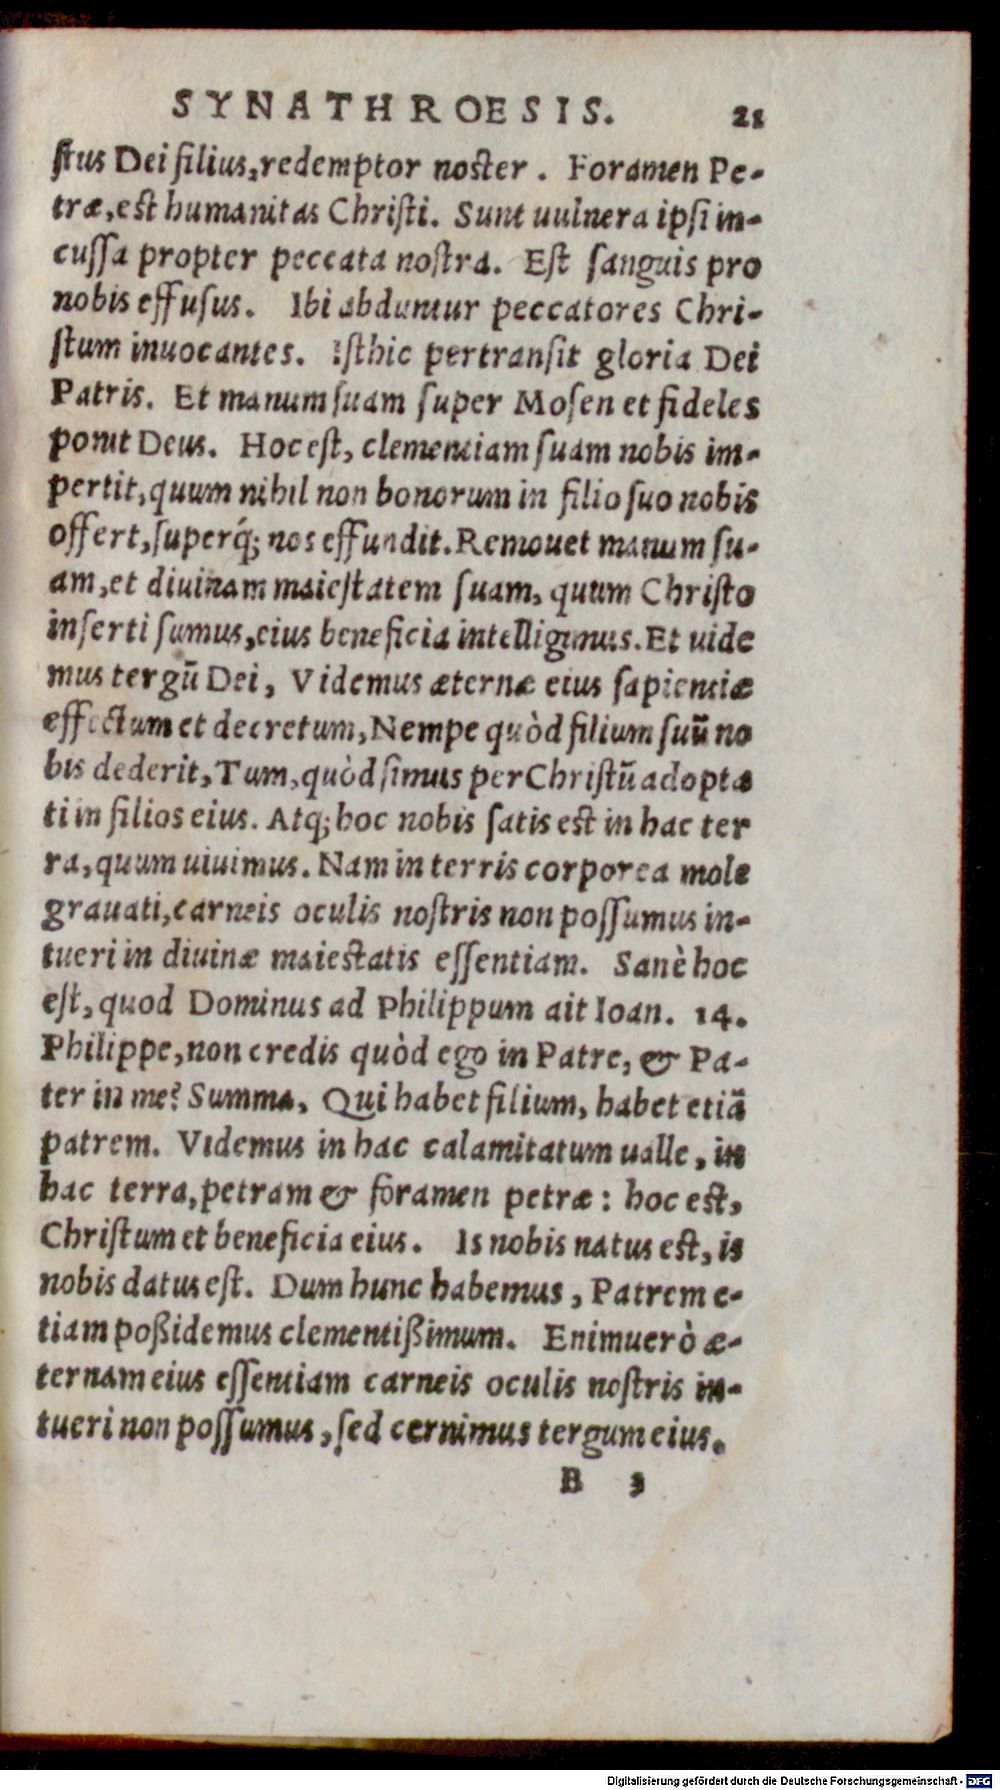 SYNATHROESIS. 21
ſtus Dei filius, redemptor noster. Foramen Pe-
træ, est humanitas Chriſti. Sunt uulnera ipſi in-
cuſſa propter peccata noſtra. Eſt ſanguis pro
nobis effuſus. Ibi abduntur peccatores Chri-
ſtum inuocantes. Iſthic pertranſit gloria Dei
Patris. Et manum ſuam ſuper Moſen et fideles
ponit Deus. Hoc eſt, clementiam ſuam nobis im-
pertit, quum nihil non bonorum in filio ſuo nobis
offert, ſuperq́; nos effundit. Remouet manum ſu-
am, et diuinam maieſtatem ſuam, quum Chriſto
inſerti ſumus, eius beneficia intelligimus. Et uide
mus tergũ Dei, Videmus æternæ eius ſapientiæ
effectum et decretum, Nempe quòd filium ſuũ no
bis dederit, Tum, quòd ſimus per Chriſtũ adopta
ti in filios eius. Atq; hoc nobis ſatis est in hac ter
ra, quum uiuimus. Nam in terris corporea mole
grauati, carneis oculis noſtris non poſſumus in-
tueri in diuinæ maiestatis eſſentiam. Sanè hoc
eſt, quod Dominus ad Philippum ait Ioan. 14.
Philippe, non credis quòd ego in Patre, & Pa-
ter in me? Summa, Qui habet filium, habet etiã
patrem. Videmus in hac calamitatum ualle, in
hac terra, petram & foramen petræ: hoc est,
Chriſtum et beneficia eius. Is nobis natus est, is
nobis datus eſt. Dum hunc habemus, Patrem e-
tiam poßidemus clementißimum. Enimuerò æ-
ternam eius eſſentiam carneis oculis noſtris in-
tueri non poſſumus, ſed cernimus tergum eius.
B 3
Digitalisierung gefördert durch die Deutsche Forschungsgemeinschaft - DFG